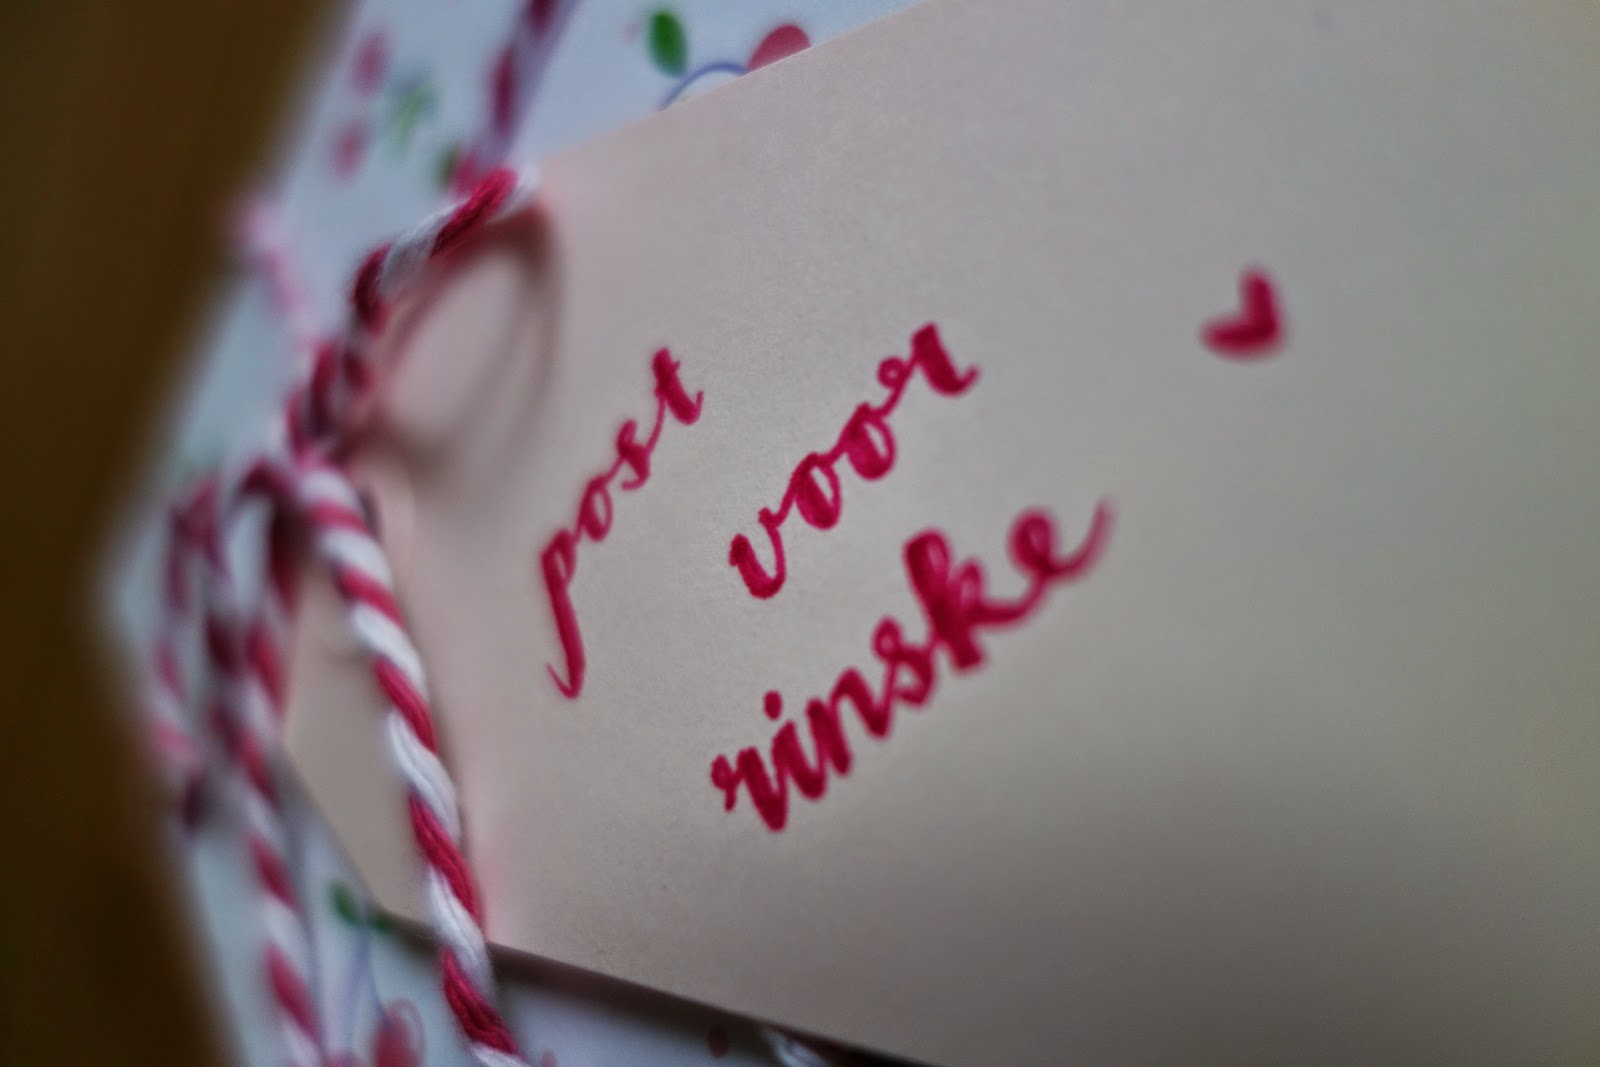 post
voor
rinske